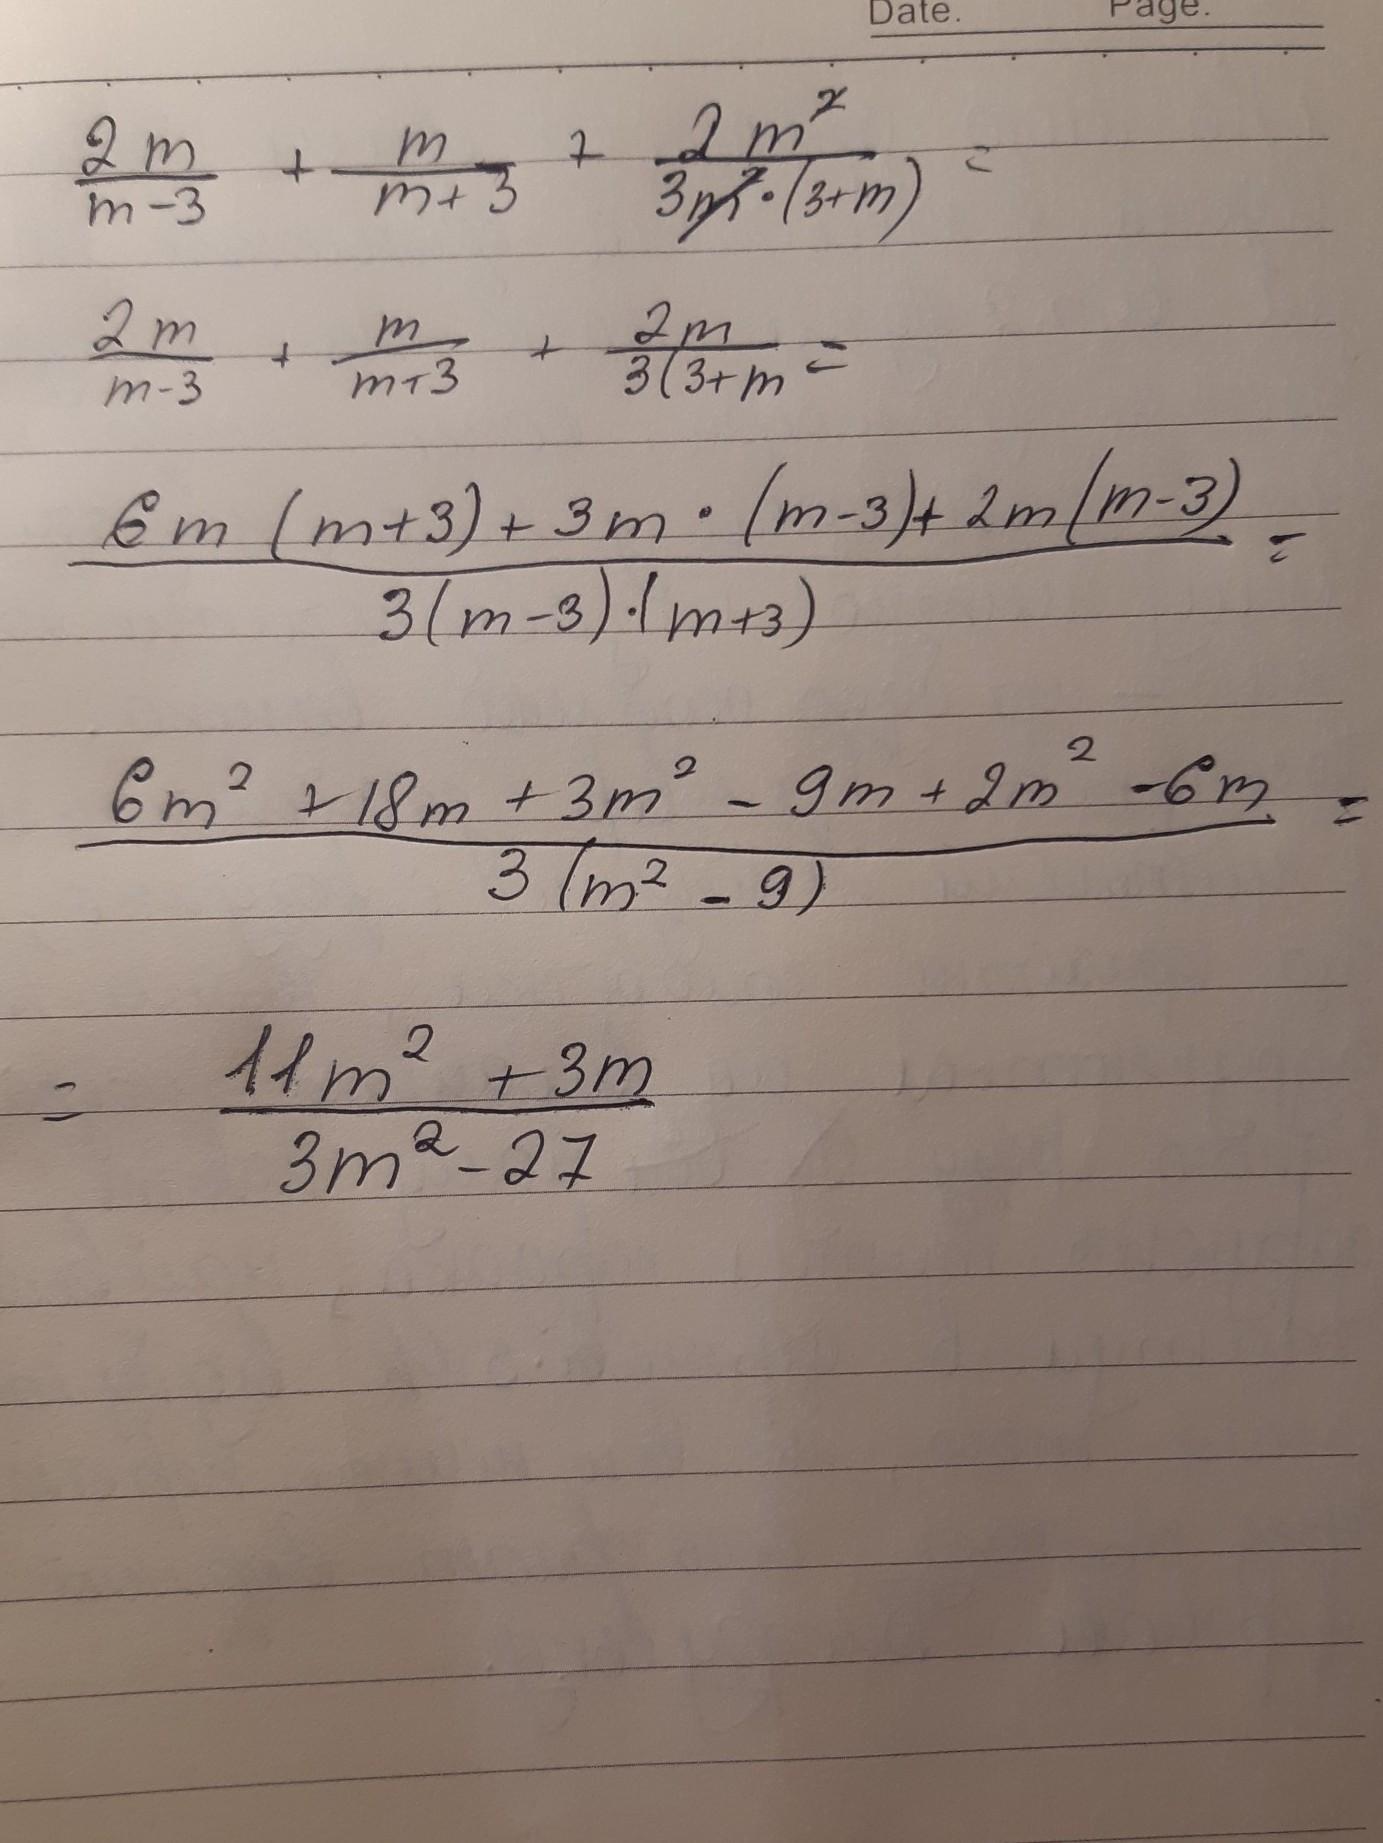 Date. Page.
2m/(m-3) + m/(m+3) + 2m²/(3m²·(3+m)) =
2m/(m-3) + m/(m+3) + 2m/(3(3+m =
(6m(m+3)+3m·(m-3)+2m(m-3))/(3(m-3)·(m+3)) =
(6m²+18m+3m²-9m+2m²-6m)/(3(m²-9)) =
= (11m²+3m)/(3m²-27)